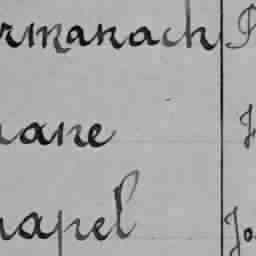 rmanach
ane
hapel Jo